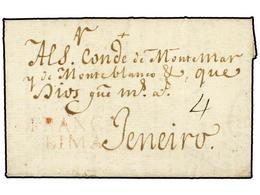 Al S.r Conde de Montemar
y de Monteblanco &, que
Dios gue m.s a.s
4
FRANCA
LIMA
Jeneiro.